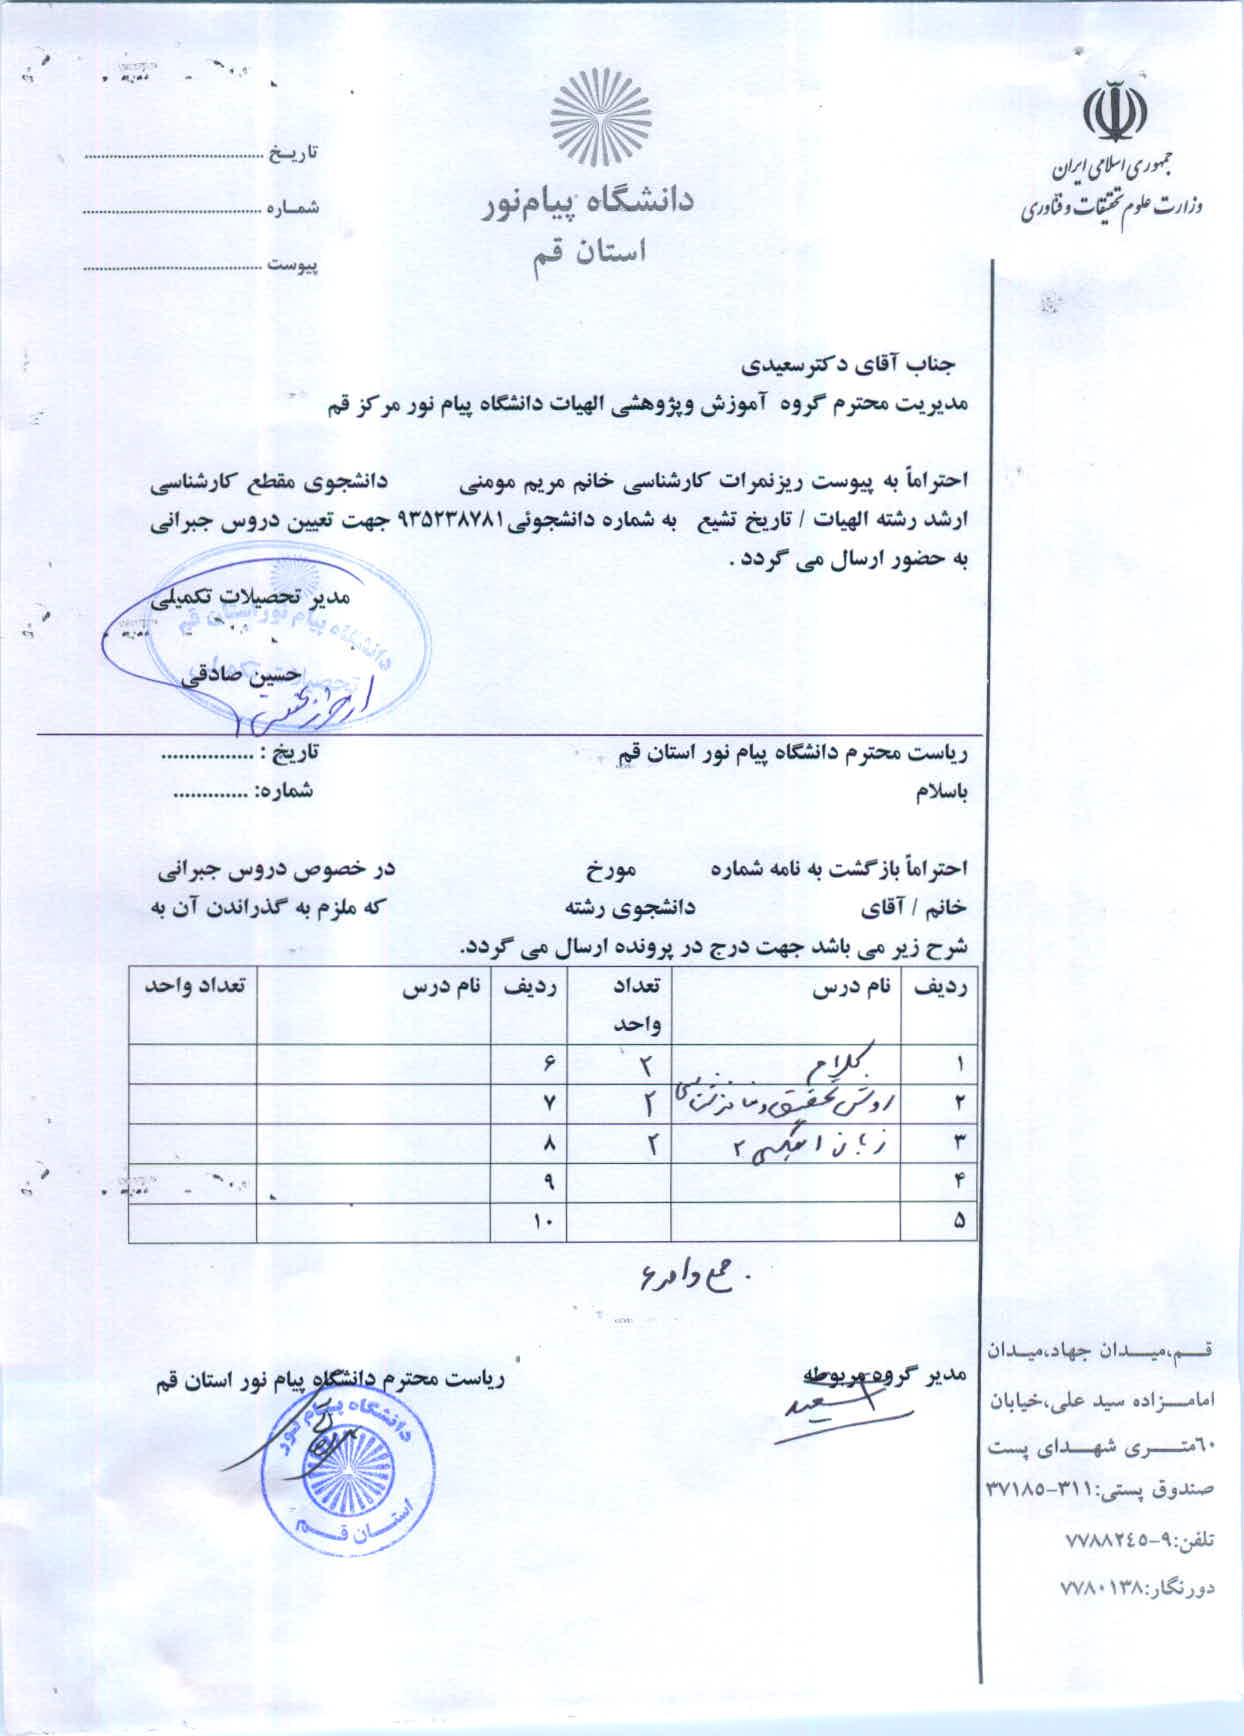 جمهوری اسلامی ایران
وزارت علوم تحقیقات و فناوری
دانشگاه پیام‌نور
استان قم
تاریـخ ........................................
شمـاره ........................................
پیوست ........................................
جناب آقای دکترسعیدی
مدیریت محترم گروه آموزش وپژوهشی الهیات دانشگاه پیام نور مرکز قم
احتراماً به پیوست ریزنمرات کارشناسی خانم مریم مومنی دانشجوی مقطع کارشناسی
ارشد رشته الهیات / تاریخ تشیع به شماره دانشجوئی ۹۳۵۲۳۸۷۸۱ جهت تعیین دروس جبرانی
به حضور ارسال می گردد .
مدیر تحصیلات تکمیلی
دانشگاه پیام نور استان قم
حسین صادقی
ریاست محترم دانشگاه پیام نور استان قم
تاریخ : ................
باسلام
شماره: .............
احتراماً بازگشت به نامه شماره مورخ در خصوص دروس جبرانی
خانم / آقای دانشجوی رشته که ملزم به گذراندن آن به
شرح زیر می باشد جهت درج در پرونده ارسال می گردد.
ردیف نام درس تعداد واحد ردیف نام درس تعداد واحد
۱ کلام ۲ ۶
۲ روش تحقیق و ماخذشناسی ۲ ۷
۳ زبان انگلیسی ۲ ۲ ۸
۴ ۹
۵ ۱۰
جمع واحد ۶
مدیر گروه مربوطه
ریاست محترم دانشگاه پیام نور استان قم
دانشگاه پیام نور
استان قم
قـــم،میـــدان جهاد،میـدان
امامـــزاده سید علی،خیابان
٦٠متـــری شهـــدای پست
صندوق پستی:۳۱۱-۳۷۱۸۵
تلفن:۹-۷۷۸۸۲٤٥
دورنگار:۷۷۸۰۱۳۸